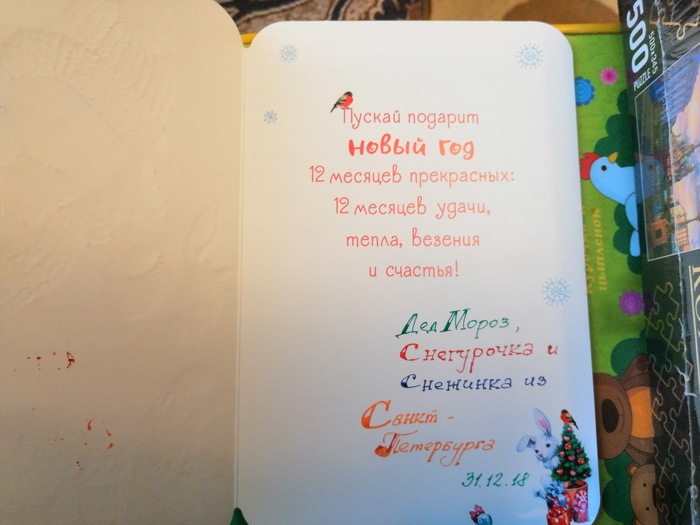 Пускай подарит
Новый год
12 месяцев прекрасных:
12 месяцев удачи,
тепла, везения
и счастья!
Дед Мороз,
Снегурочка и
Снежинка из
Санкт-
Петербурга
31.12.18
500
PUZZLE
цыпленок